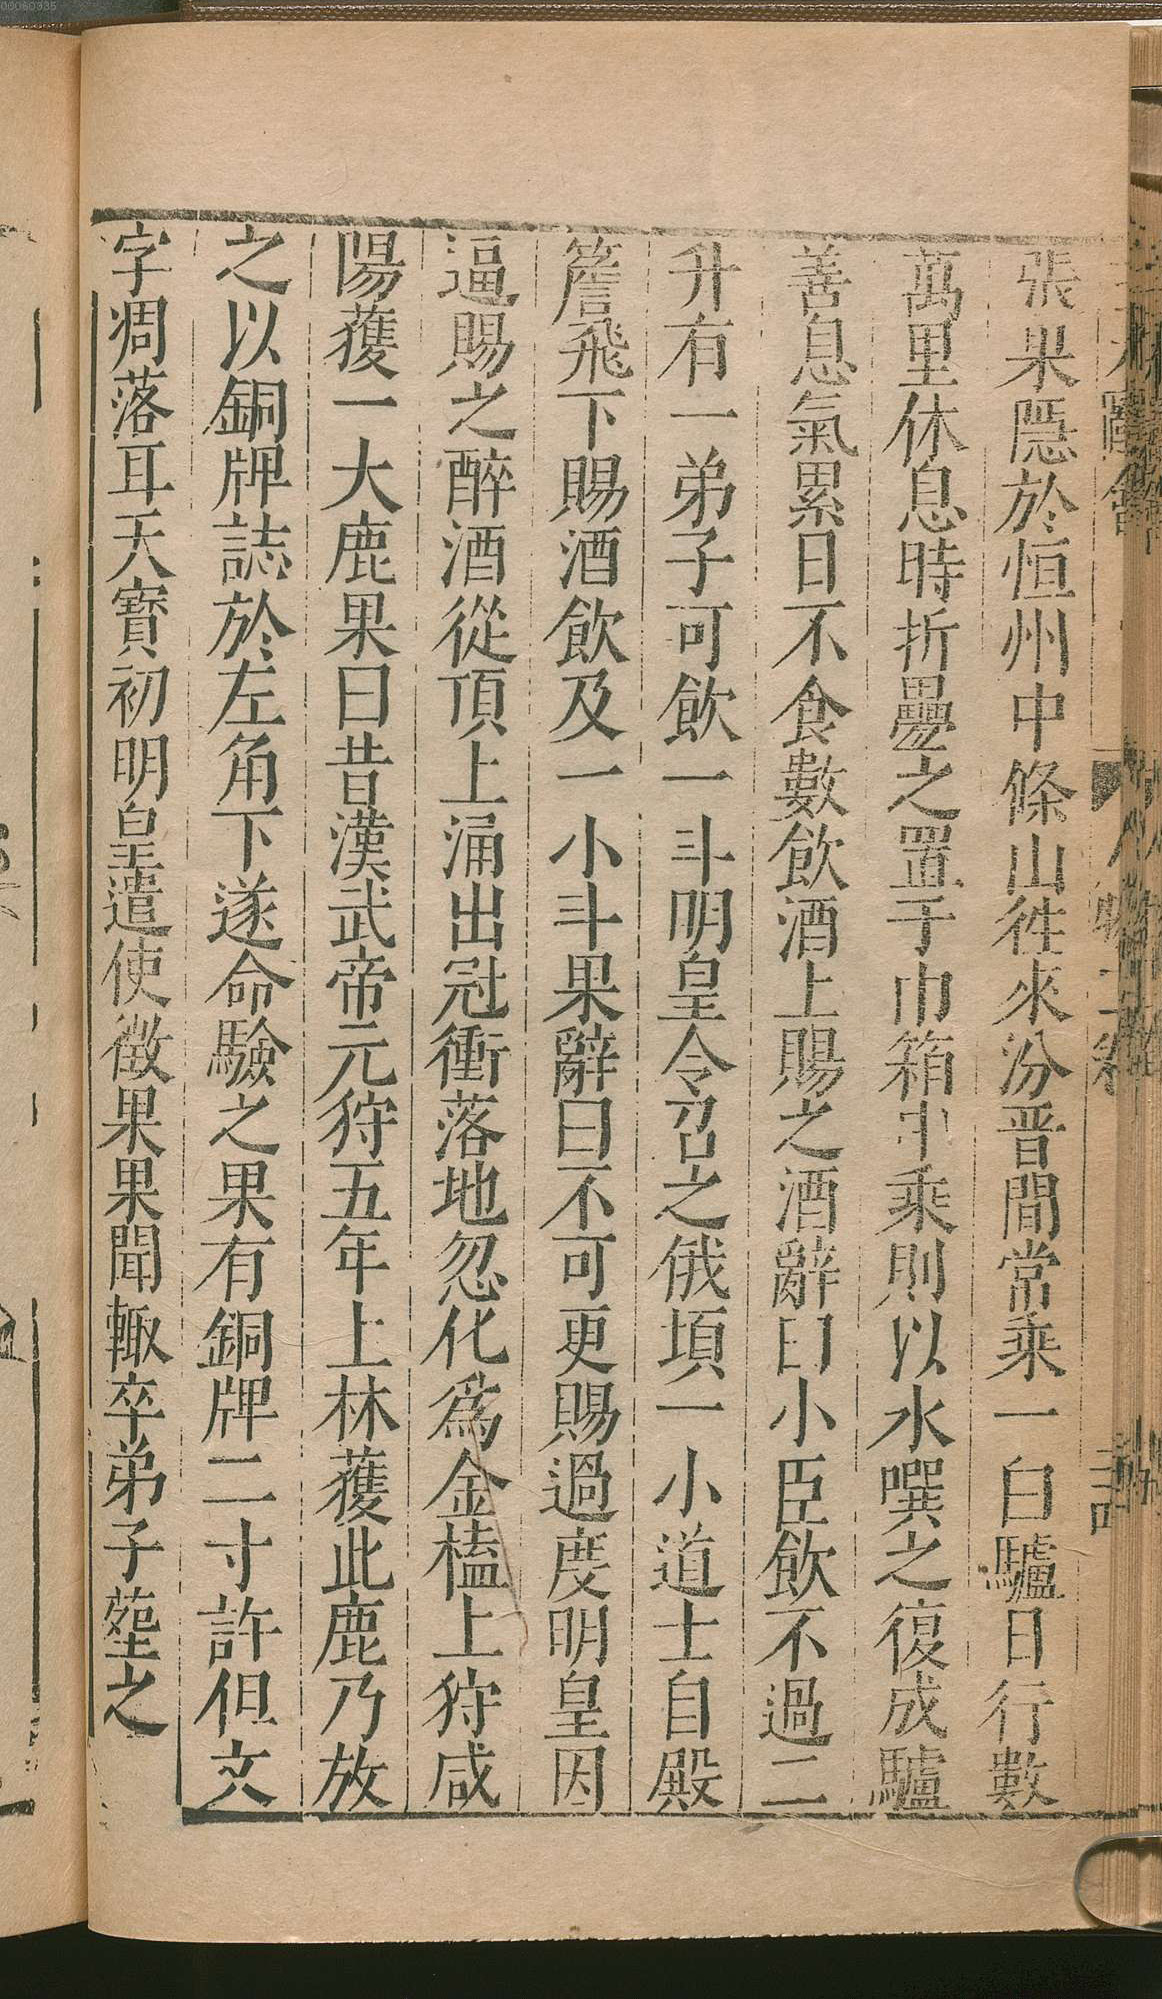 張果隱於恒州中條山徃來汾晋間常乘一白驢日行數
萬里休息時折疊之置于巾箱中乘則以水噀之復成驢
善息氣累日不食數飲酒上賜之酒辭曰小臣飲不過二
升有一弟子可飲一斗明皇令召之俄頃一小道士自殿
簷飛下賜酒飲及一小斗果辭曰不可更賜過度明皇因
逼賜之醉酒從頂上涌出冠衝落地忽化為金榼上狩咸
陽獲一大鹿果曰昔漢武帝元狩五年上林獲此鹿乃放
之以銅牌誌於左角下遂命驗之果有銅牌二寸許但文
字凋落耳天寶初明皇遣使徵果果聞輒卒弟子塟之
00060335